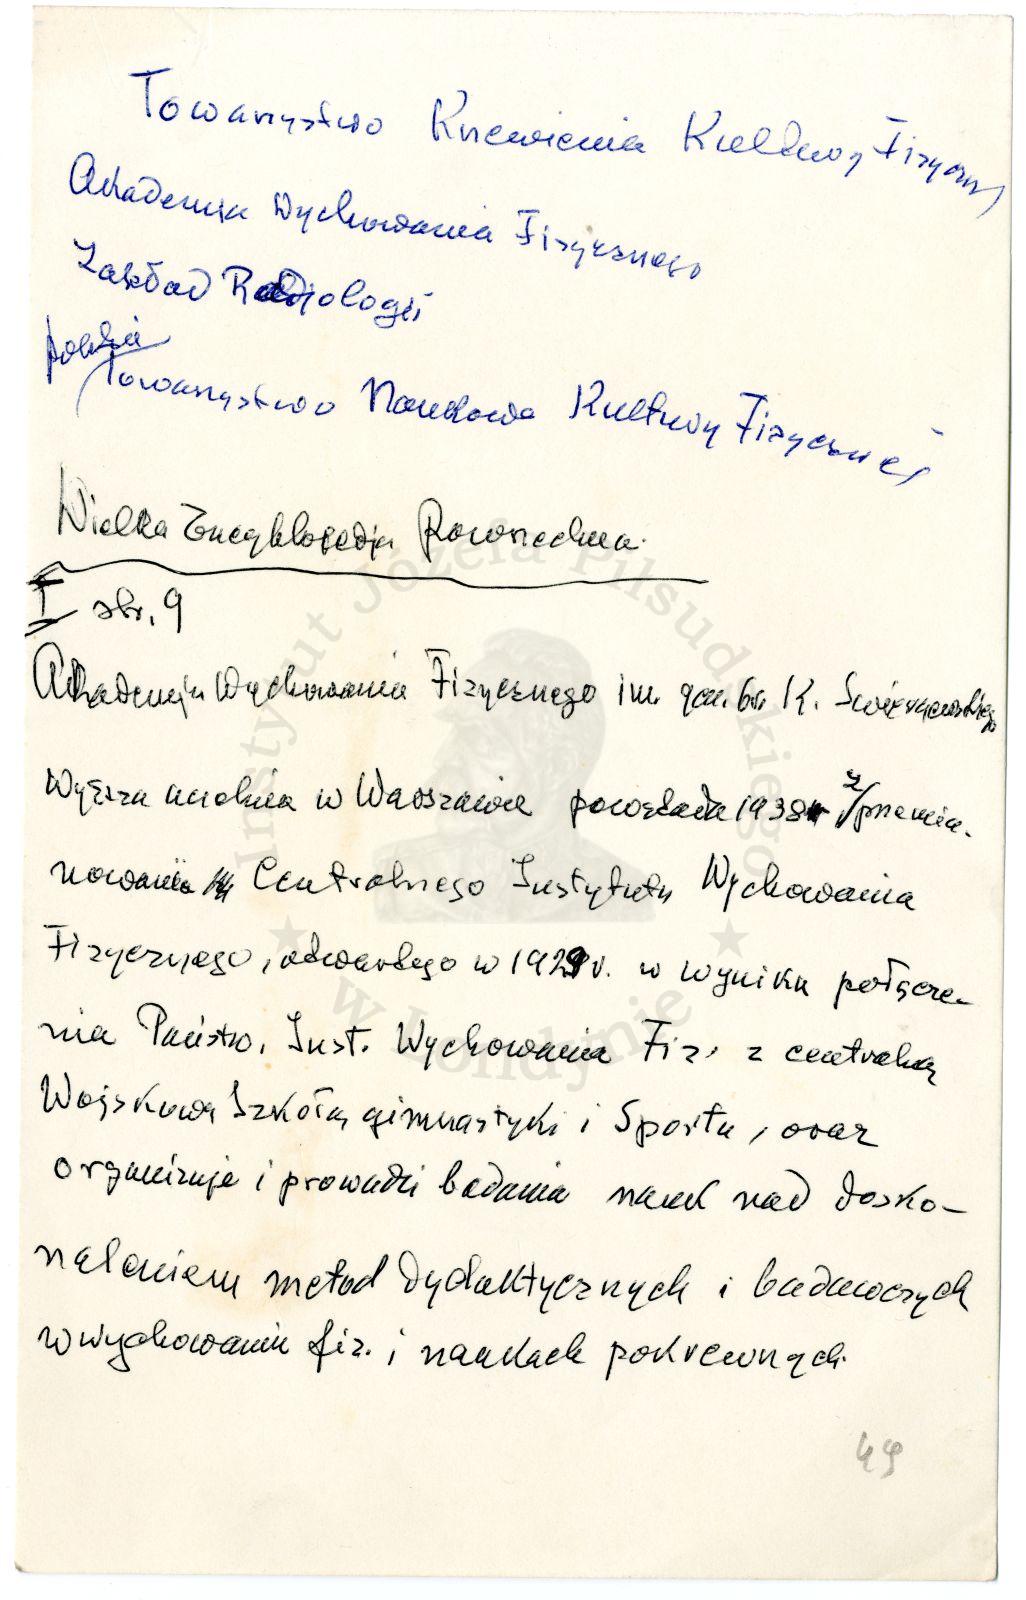 Towarzystwo Krzewienia Kultury Fizyczn
Akademia Wychowania Fizycznego
Zakład Radiologii
polskie
Towarzystwo Naukowe Kultury Fizycznej
Wielka Encyklopedja Powszechna.
I str. 9
Akademja Wychowania Fizycznego im. gen. br. K. Świerczewskiego
Wyższa uczelnia w Warszawie powstała 1938 z przemia-
nowania Centralnego Instytutu Wychowania
Fizycznego, otwartego w 1929 r. w wyniku połącze-
nia Państw. Inst. Wychowania Fiz. z centralną
Wojskową Szkołą gimnastyki i Sportu, oraz
organizuje i prowadzi badania nauk nad dosko-
naleniem metod dydaktycznych i badawczych
w wychowaniu fiz. i naukach pokrewnych.
49
Instytut Józefa Piłsudskiego
w Londynie